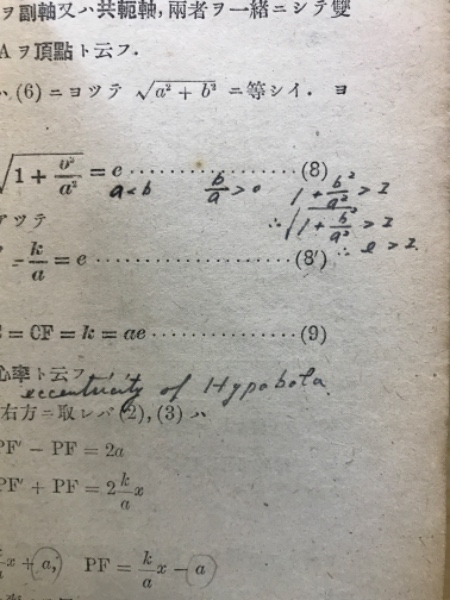 ヲ副軸又ハ共軛軸,兩者ヲ一緒ニシテ雙
Aヲ頂點ト云フ.
ハ (6) ニヨツテ √(a² + b²) ニ等シイ. ヨ
√(1 + b²/a²) = e ⋯⋯⋯⋯⋯⋯ (8)
a<b b/a > 0 1 + b²/a² > 1
∴ √(1 + b²/a²) > 1
∴ e > 1.
ツテ
k/a = e ⋯⋯⋯⋯⋯⋯ (8′)
= CF = k = ae ⋯⋯⋯⋯⋯⋯ (9)
心率ト云フ
eccentricity of Hypabola.
右方ニ取レバ (2), (3) ハ
PF′ − PF = 2a
PF′ + PF = 2 k/a x
k/a x + a, PF = k/a x − a